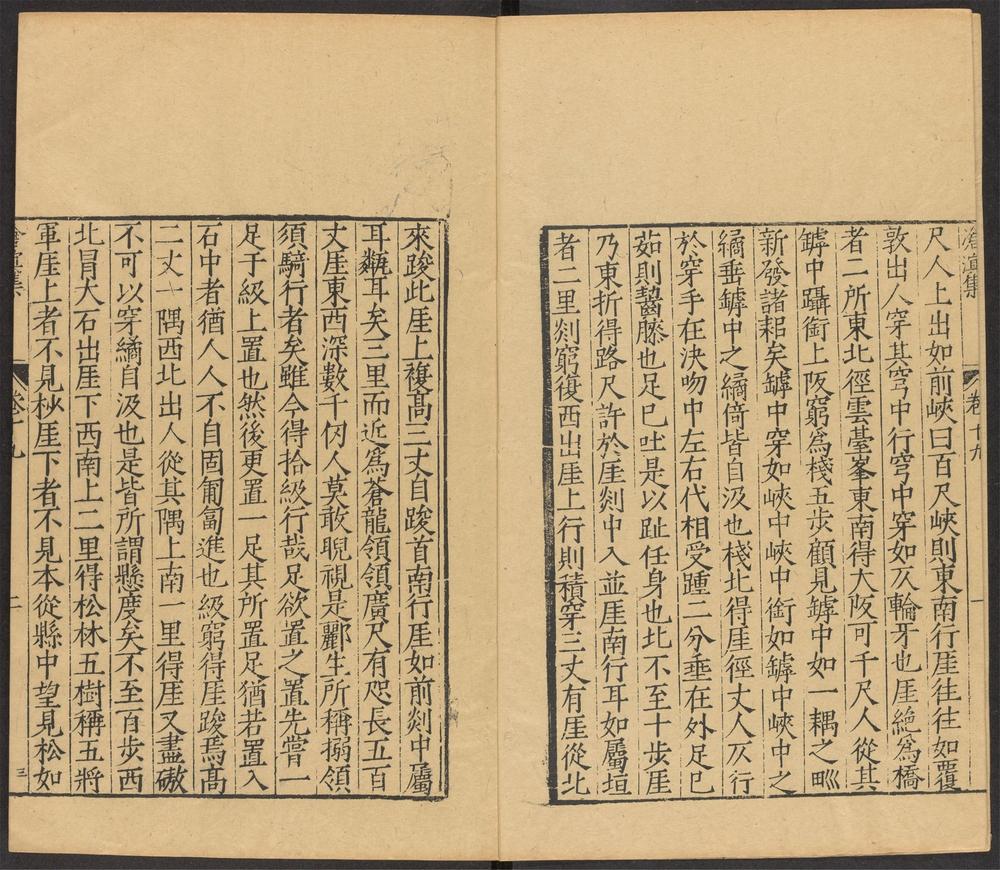 滄溟集
卷十九
一
尺人上出如前峽曰百尺峽則東南行厓往往如覆
敦出人穿其穹中行穹中穿如仄輪牙也厓絕爲橋
者二所東北徑雲臺峯東南得大阪可千尺人從其
罅中躡銜上阪窮爲棧五步顧見罅中如一耦之𤰕
新發諸耜矣罅中穿如峽中峽中銜如罅中峽中之
繘垂罅中之繘倚皆自汲也棧北得厓徑丈人仄行
於穿手在決吻中左右代相受踵二分垂在外足已
茹則齧膝也足已吐是以趾任身也北不至十步厓
乃東折得路尺許於厓剡中入並厓南行耳如屬垣
者二里剡窮復西出厓上行則積穿三丈有厓從北
來踆此厓上複高三丈自踆首南行厓如前剡中屬
耳甤耳矣三里而近爲蒼龍領領廣尺有咫長五百
丈厓東西深數千仞人莫敢睨視是酈生所稱搦領
須騎行者矣雖今得拾級行哉足欲置之置先嘗一
足于級上置也然後更置一足其所置足猶若置入
石中者猶人人不自固匍匐進也級窮得厓踆焉高
二丈一隅西北出人從其隅上南一里得厓又盡礉
不可以穿繘自汲也是皆所謂懸度矣不至百步西
北冒大石出厓下西南上二里得松林五樹稱五將
軍厓上者不見杪厓下者不見本從縣中望見松如
卷十九
二
三